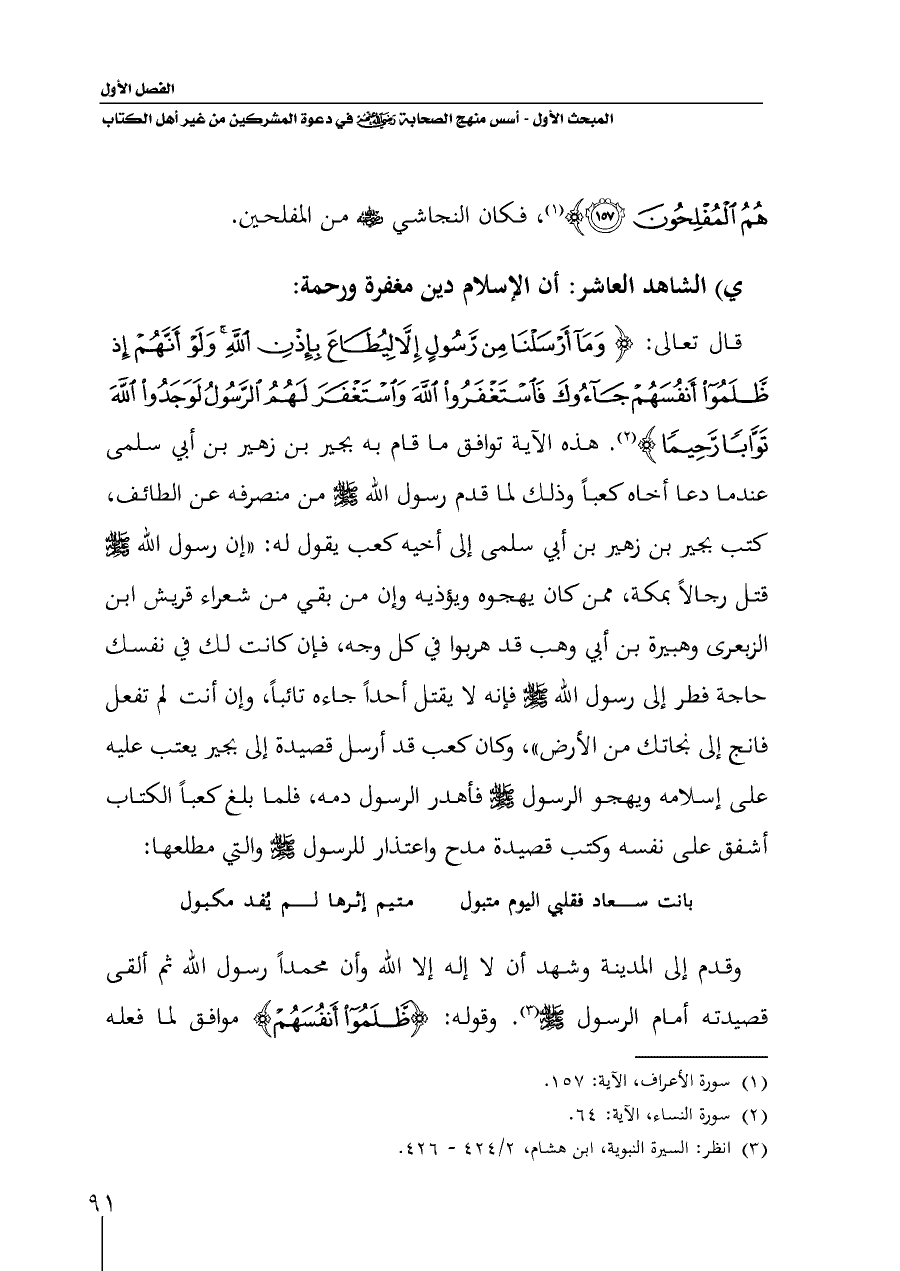 الفصل الأول
المبحث الأول - أسس منهج الصحابة رضي الله عنهم في دعوة المشركين من غير أهل الكتاب
هُمُ ٱلْمُفْلِحُونَ ۝١٥٧﴾(١)، فكان النجاشي رضي الله عنه من المفلحين.
ي) الشاهد العاشر: أن الإسلام دين مغفرة ورحمة:
قال تعالى: ﴿وَمَآ أَرْسَلْنَا مِن رَّسُولٍ إِلَّا لِيُطَاعَ بِإِذْنِ ٱللَّهِ ۚ وَلَوْ أَنَّهُمْ إِذ
ظَّلَمُوٓا۟ أَنفُسَهُمْ جَآءُوكَ فَٱسْتَغْفَرُوا۟ ٱللَّهَ وَٱسْتَغْفَرَ لَهُمُ ٱلرَّسُولُ لَوَجَدُوا۟ ٱللَّهَ
تَوَّابًا رَّحِيمًا﴾(٢). هذه الآية توافق ما قام به بجير بن زهير بن أبي سلمى
عندما دعا أخاه كعباً وذلك لما قدم رسول الله ﷺ من منصرفه عن الطائف،
كتب بجير بن زهير بن أبي سلمى إلى أخيه كعب يقول له: «إن رسول الله ﷺ
قتل رجالاً بمكة، ممن كان يهجوه ويؤذيه وإن من بقي من شعراء قريش ابن
الزبعرى وهبيرة بن أبي وهب قد هربوا في كل وجه، فإن كانت لك في نفسك
حاجة فطر إلى رسول الله ﷺ فإنه لا يقتل أحداً جاءه تائباً، وإن أنت لم تفعل
فانج إلى نجاتك من الأرض»، وكان كعب قد أرسل قصيدة إلى بجير يعتب عليه
على إسلامه ويهجو الرسول ﷺ فأهدر الرسول دمه، فلما بلغ كعباً الكتاب
أشفق على نفسه وكتب قصيدة مدح واعتذار للرسول ﷺ والتي مطلعها:
بانت سعاد فقلبي اليوم متبول    متيم إثرها لم يُفد مكبول
وقدم إلى المدينة وشهد أن لا إله إلا الله وأن محمداً رسول الله ثم ألقى
قصيدته أمام الرسول ﷺ(٣). وقوله: ﴿ظَّلَمُوٓا۟ أَنفُسَهُمْ﴾ موافق لما فعله
(١) سورة الأعراف، الآية: ١٥٧.
(٢) سورة النساء، الآية: ٦٤.
(٣) انظر: السيرة النبوية، ابن هشام، ٤٢٤/٢ - ٤٢٦.
٩١